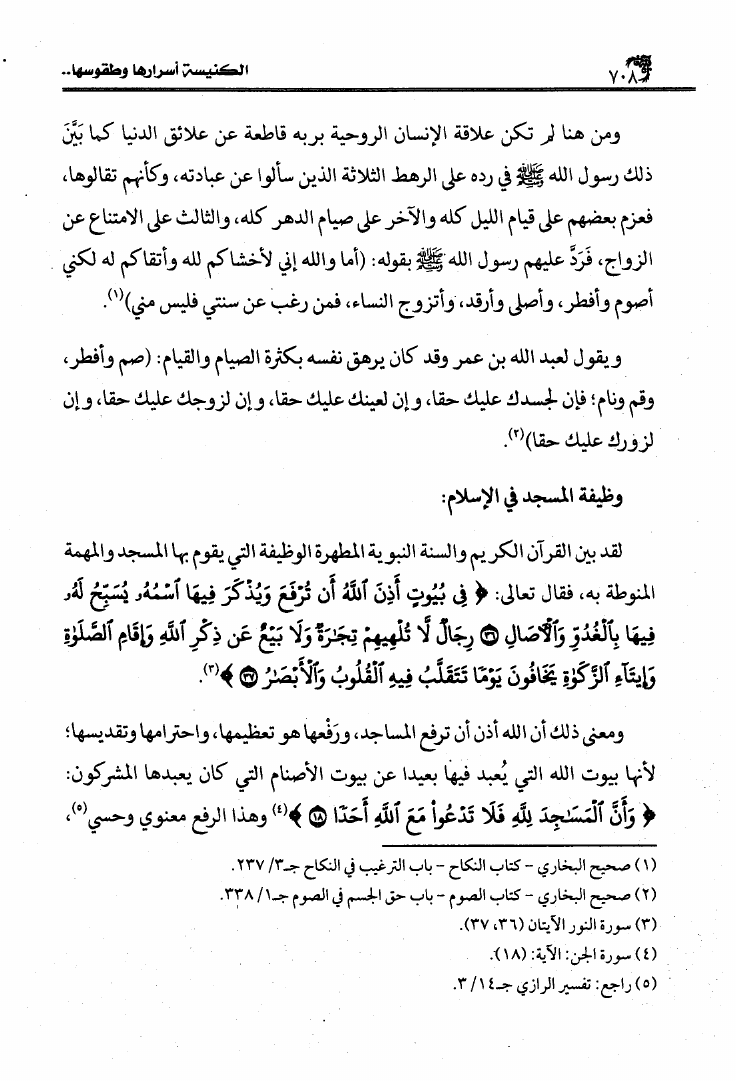 ٧٠٨ الكنيسة أسرارها وطقوسها..
ومن هنا لم تكن علاقة الإنسان الروحية بربه قاطعة عن علائق الدنيا كما بَيَّنَ
ذلك رسول الله ﷺ في رده على الرهط الثلاثة الذين سألوا عن عبادته، وكأنهم تقالوها،
فعزم بعضهم على قيام الليل كله والآخر على صيام الدهر كله، والثالث على الامتناع عن
الزواج، فَرَدَّ عليهم رسول الله ﷺ بقوله: (أما والله إني لأخشاكم لله وأتقاكم له لكني
أصوم وأفطر، وأصلى وأرقد، وأتزوج النساء، فمن رغب عن سنتي فليس مني)(١).
ويقول لعبد الله بن عمر وقد كان يرهق نفسه بكثرة الصيام والقيام: (صم وأفطر،
وقم ونام؛ فإن لجسدك عليك حقا، وإن لعينك عليك حقا، وإن لزوجك عليك حقا، وإن
لزورك عليك حقا)(٢).
وظيفة المسجد في الإسلام:
لقد بين القرآن الكريم والسنة النبوية المطهرة الوظيفة التي يقوم بها المسجد والمهمة
المنوطة به، فقال تعالى: ﴿ فِى بُيُوتٍ أَذِنَ ٱللَّهُ أَن تُرْفَعَ وَيُذْكَرَ فِيهَا ٱسْمُهُۥ يُسَبِّحُ لَهُۥ
فِيهَا بِٱلْغُدُوِّ وَٱلْءَاصَالِ ٣٦ رِجَالٌ لَّا تُلْهِيهِمْ تِجَٰرَةٌ وَلَا بَيْعٌ عَن ذِكْرِ ٱللَّهِ وَإِقَامِ ٱلصَّلَوٰةِ
وَإِيتَآءِ ٱلزَّكَوٰةِ يَخَافُونَ يَوْمًا تَتَقَلَّبُ فِيهِ ٱلْقُلُوبُ وَٱلْأَبْصَٰرُ ٣٧ ﴾(٣).
ومعنى ذلك أن الله أذن أن ترفع المساجد، ورَفْعها هو تعظيمها، واحترامها وتقديسها؛
لأنها بيوت الله التي يُعبد فيها بعيدا عن بيوت الأصنام التي كان يعبدها المشركون:
﴿ وَأَنَّ ٱلْمَسَٰجِدَ لِلَّهِ فَلَا تَدْعُوا۟ مَعَ ٱللَّهِ أَحَدًا ١٨ ﴾(٤) وهذا الرفع معنوي وحسي(٥)،
(١) صحيح البخاري - كتاب النكاح - باب الترغيب في النكاح جـ٣/ ٢٣٧.
(٢) صحيح البخاري - كتاب الصوم - باب حق الجسم في الصوم جـ١/ ٣٣٨.
(٣) سورة النور الآيتان (٣٦، ٣٧).
(٤) سورة الجن: الآية: (١٨).
(٥) راجع: تفسير الرازي جـ١٤/ ٣.